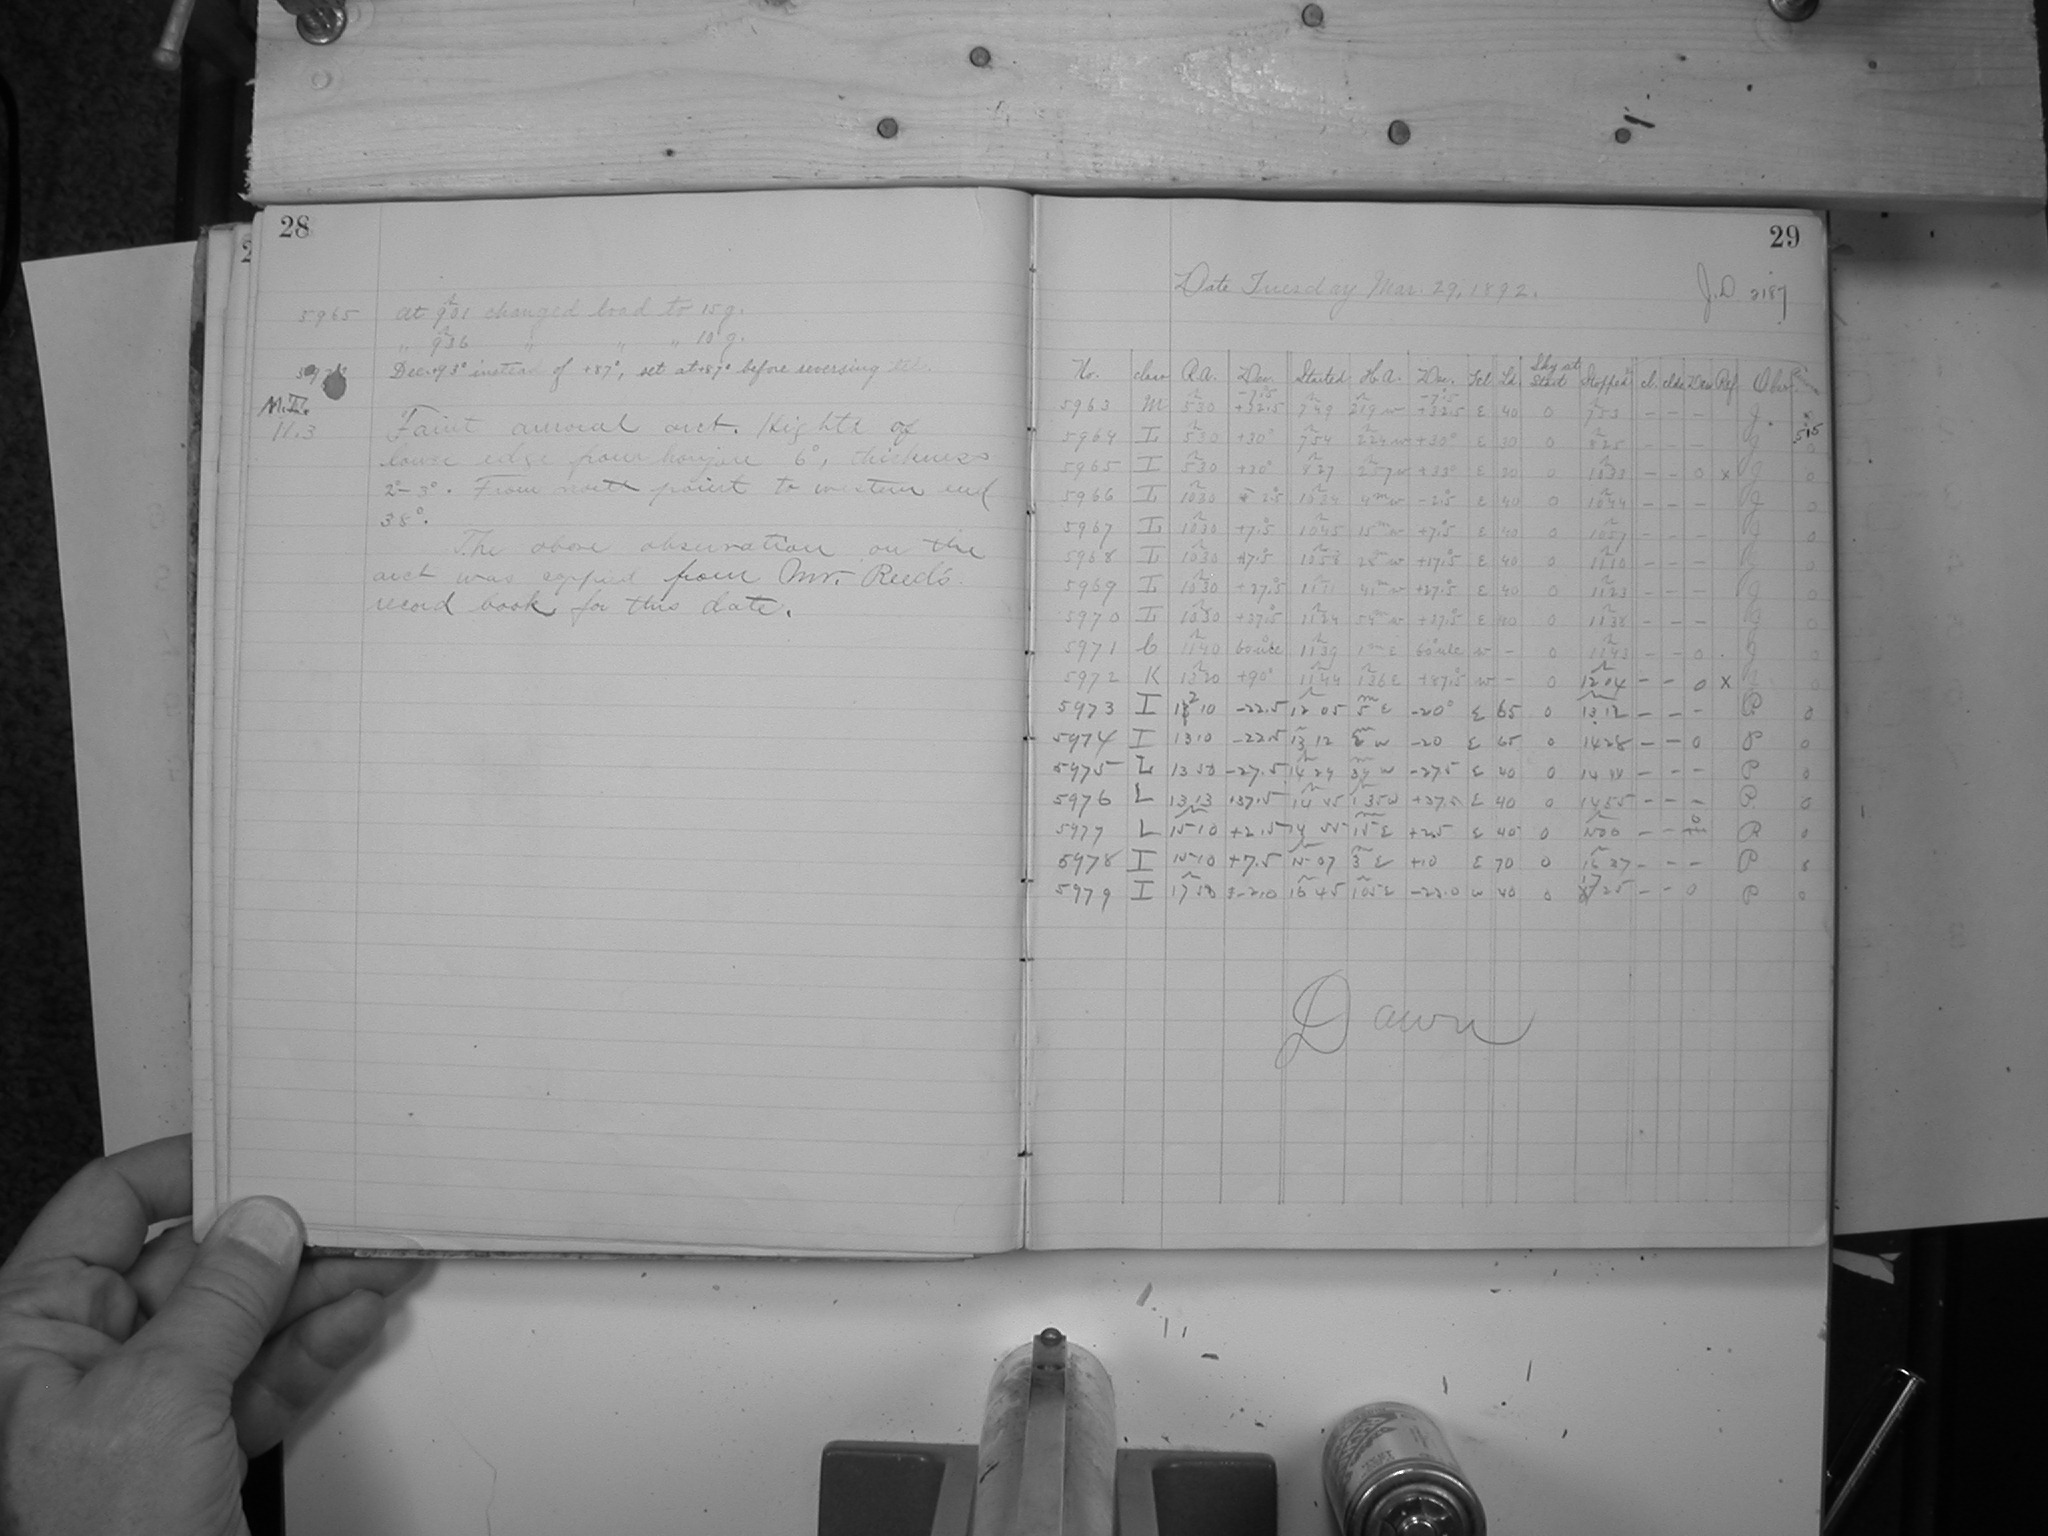 28
5965 at 9h01 changed load to 15 g.
" 9h36 " " " 10 g.
Dec. +93° instead of +87°, set at +87° before reversing tel.
11.3 Faint auroral arct. Hight of
lower edge from horizon 6°, thickness
2°-3°. From north point to western end
38°.
The above observation on the
arct was copied from Mr. Reed's
record book for this date.
29
Date Tuesday Mar. 29, 1892. J.D. 2187
No. class R.A. Dec. Started H.A. Dec. Tel. Ld. Sky at Start Stopped cl. clds Dew Ref Obsr.
5963 M 5h30 +32.5 7h49 2h19 w +32.5 E 40 0 7h53 - - - J.
5964 L 5h30 +30° 7h54 2h24 w +30° E 30 0 8h25 - - - J
5965 I 5h30 +30° 8h27 2h57 w +33° E 20 0 10h33 - - 0 x J 0
5966 L 10h30 2°.5 10h34 4m w -2°.5 E 40 0 10h44 - - - J 0
5967 L 10h30 +7°.5 10h45 15m w +7°.5 E 40 0 10h57 - - - J 0
5968 L 10h30 +17°.5 10h58 28m w +17°.5 E 40 0 11h10 - - - J 0
5969 L 10h30 +27°.5 11h11 41m w +27°.5 E 40 0 11h23 - - - J 0
5970 L 10h30 +37°.5 11h24 54m w +37°.5 E 40 0 11h38 - - - J 0
5971 C 11h40 11h39 1m E w - 0 11h43 - - 0 . J 0
5972 K 13h20 +90° 11h44 1h36 E +87°.5 w - 0 12h04 - - 0 x J 0
5973 I 12 10 -22.5 12h05 5m E -20° E 65 0 13.12 - - - P. 0
5974 I 13 10 -22.5 13h12 w -20 E 65 0 14 28 - - 0 P 0
5975 L 13 50 -27.5 14h29 39m w -27.5 E 40 0 14 44 - - - P 0
5976 L 13h13 +37.5 14h45 1h35 w +37.5 E 40 0 14 55 - - - P. 0
5977 L 15h10 +2.5 14h55 15m E +2.5 E 40 0 15h00 - - 0 P 0
5978 I 15 10 +7.5 15h07 3m E +10 E 70 0 - - - P
5979 I 17h50 -21.0 16h45 1h05 E -22.0 w 40 0 17 25 - - 0 P 0
Dawn